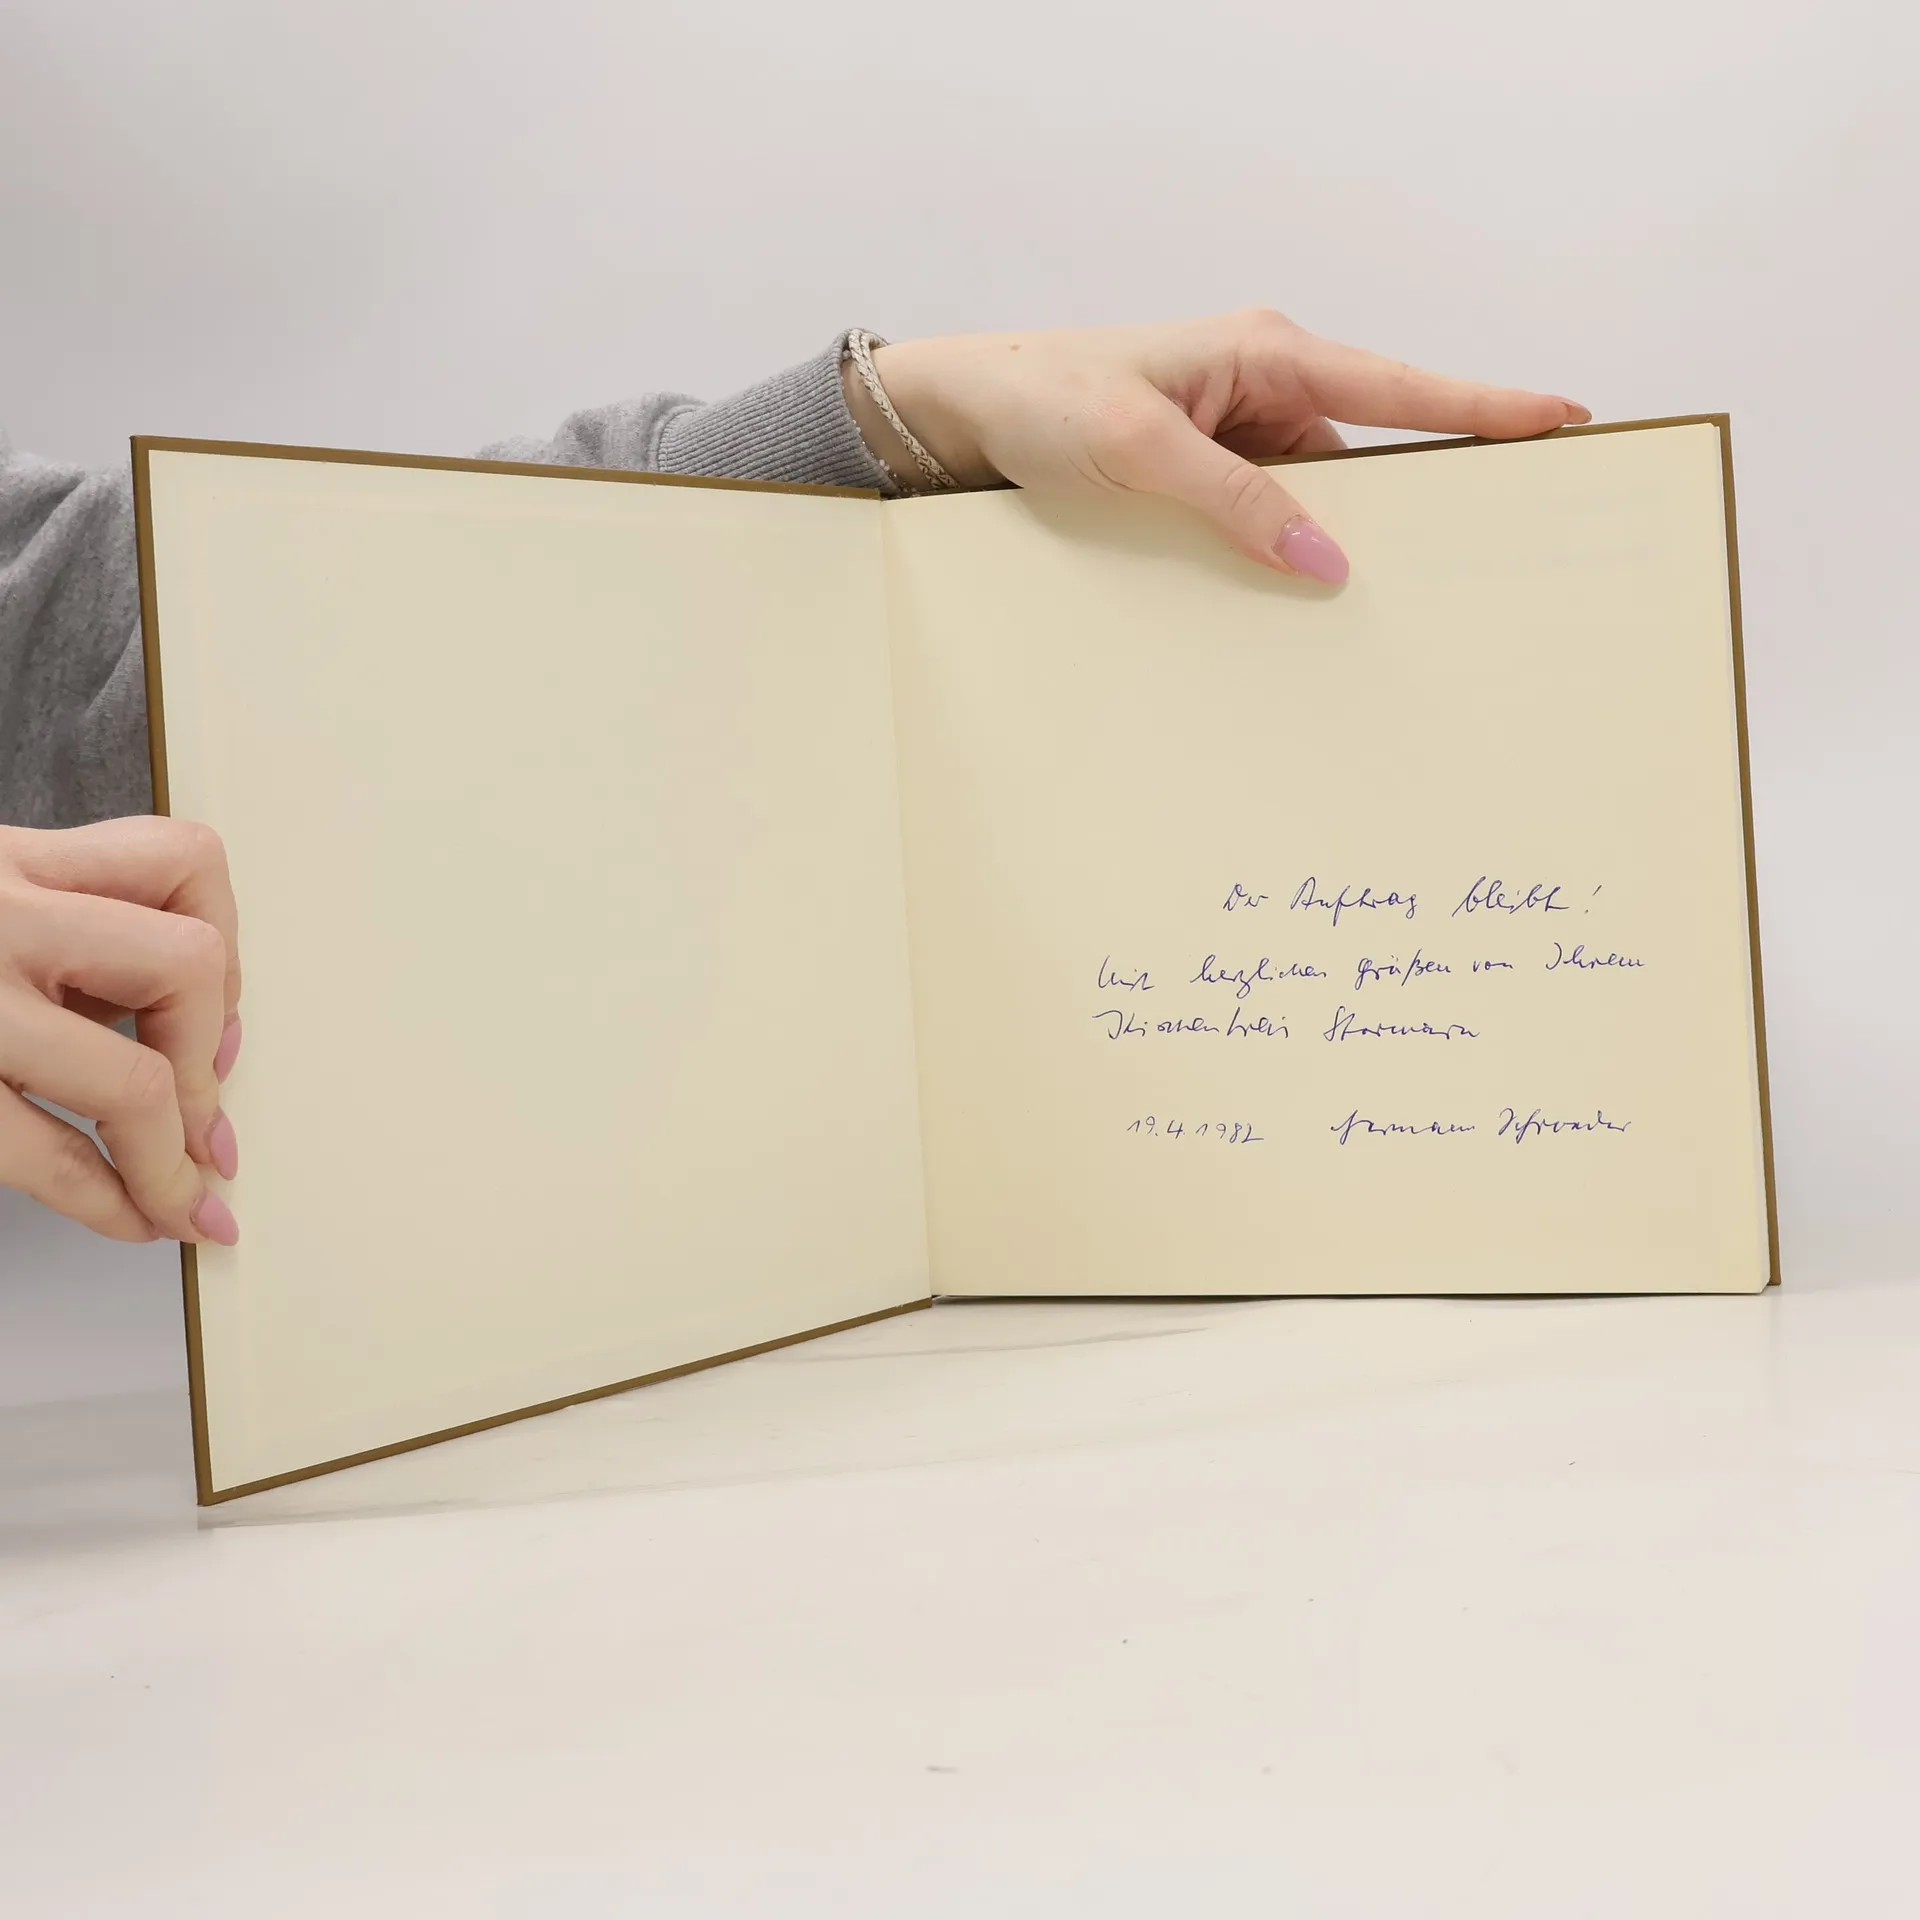 Der Auftrag bleibt!
Mit herzlichen Grüßen von Ihrem
Kirchenkreis Stormarn
19.4.1982 Hermann Schroeder